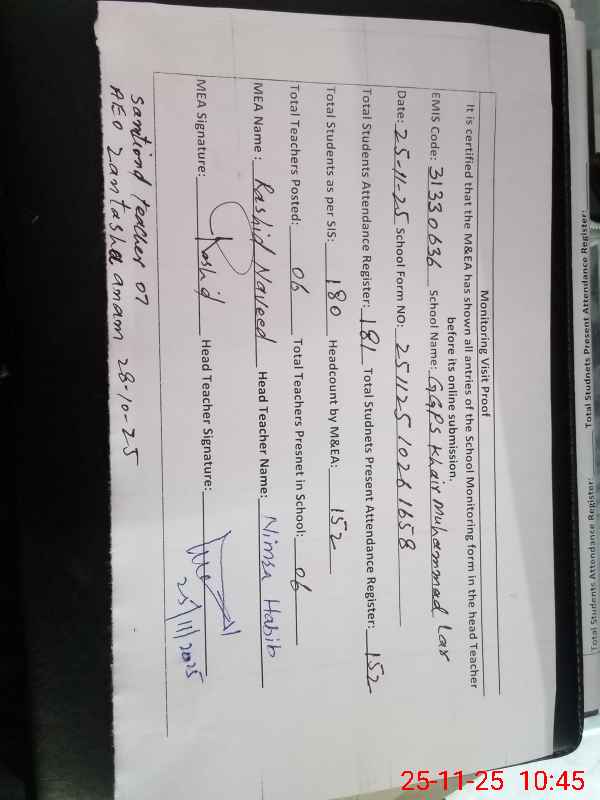 Monitoring Visit Proof
It is certified that the M&EA has shown all antries of the School Monitoring form in the head Teacher
before its online submission.
EMIS Code: 31330636 School Name: GGPS Khair Muhammad Lar
Date: 25-11-25 School Form NO: 25112510261658
Total Students Attendance Register: 181 Total Studnets Present Attendance Register: 152
Total Students as per SIS: 180 Headcount by M&EA: 152
Total Teachers Posted: 06 Total Teachers Presnet in School: 06
MEA Name : Rashid Naveed Head Teacher Name: Nimra Habib
MEA Signature: Rashid Head Teacher Signature:
25/11/2025
Santiond teacher 07
AEO Zantasha anam 28-10-25
Total Studnets Present Attendance Register:
Total Students Attendance Register:
25-11-25 10:45